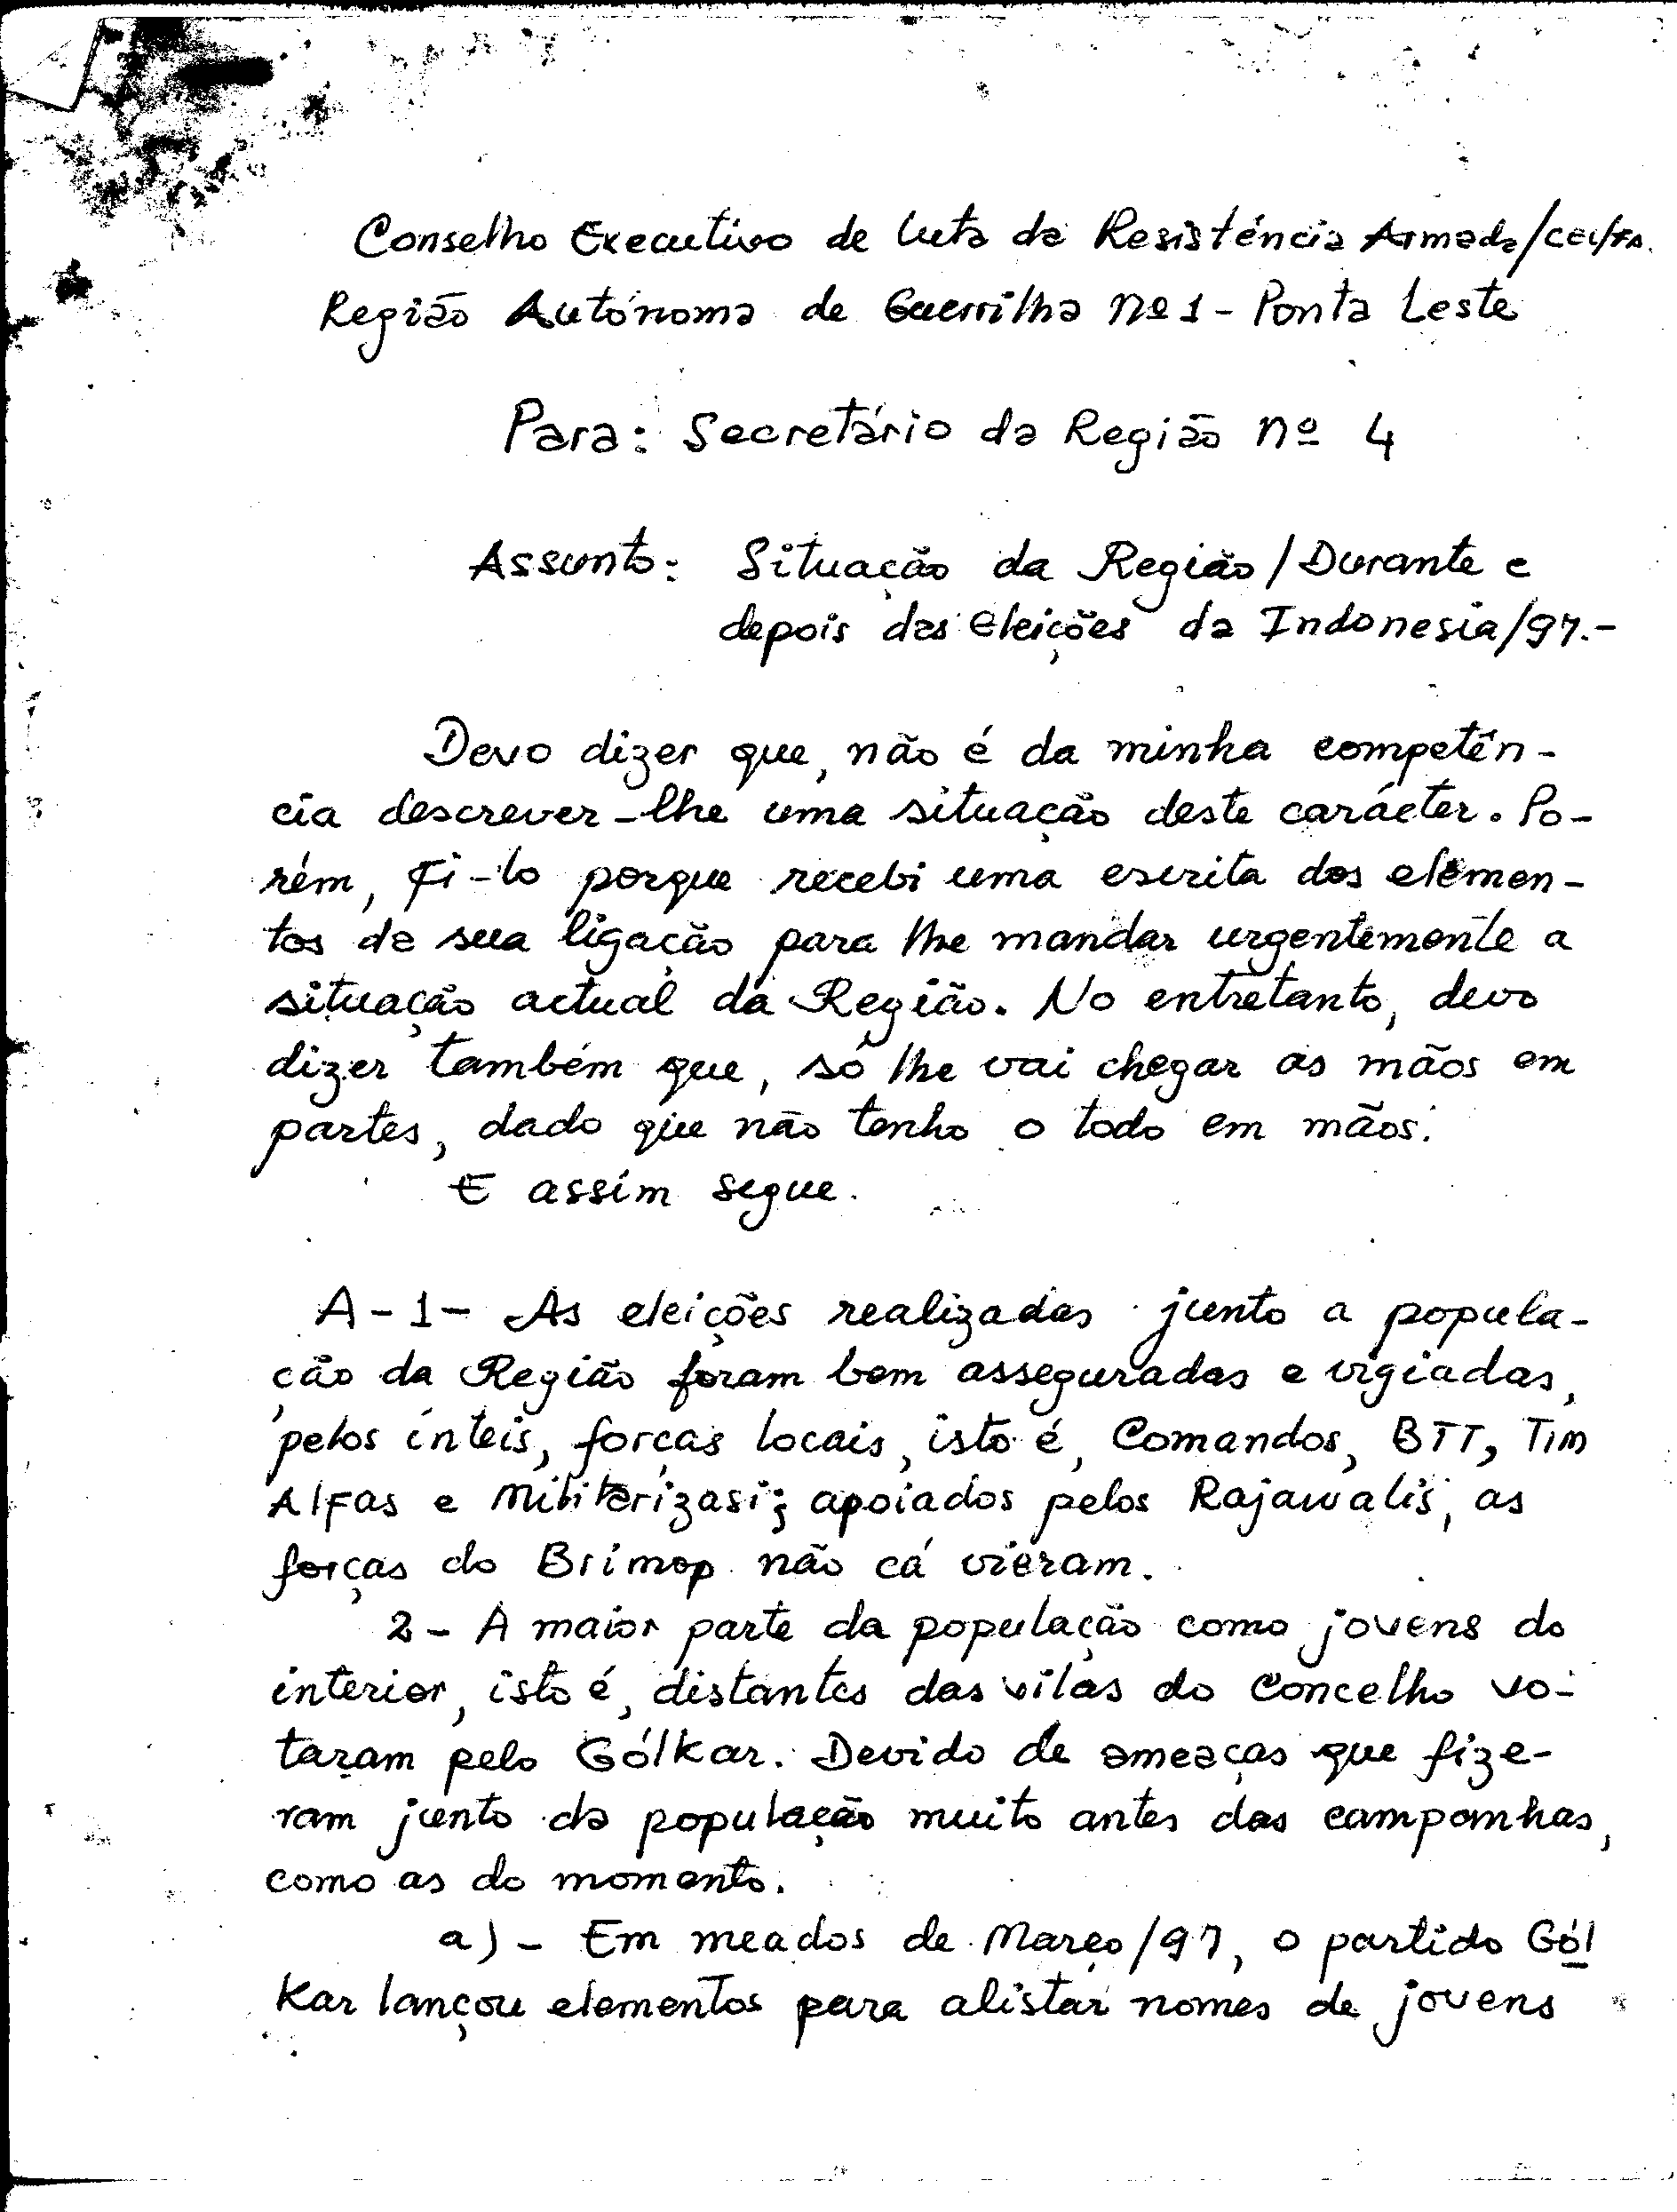 Conselho Executivo de Luta da Resistência Armada/CEL/FA.
Região Autónoma de Guerrilha nº 1 - Ponta Leste
Para: Secretário da Região nº 4
Assunto: Situação da Região / Durante e
depois das Eleições da Indonesia/97.-
Devo dizer que, não é da minha competên-
cia descrever-lhe uma situação deste carácter. Po-
rém, fi-lo porque recebi uma escrita dos elemen-
tos de sua ligação para lhe mandar urgentemente a
situação actual da Região. No entretanto, devo
dizer também que, só lhe vai chegar as mãos em
partes, dado que não tenho o todo em mãos.
E assim segue.
A - 1 - As eleições realizadas junto a popula-
ção da Região foram bem asseguradas e vigiadas,
pelos inteis, forças locais, isto é, Comandos, BTT, Tim
Alfas e Militerizasi; apoiados pelos Rajawalis, as
forças do Brimop não cá vieram.
2 - A maior parte da população como jovens do
interior, isto é, distantes das vilas do Concelho vo-
taram pelo Gólkar. Devido de ameaças que fize-
ram junto da população muito antes das campanhas,
como as do momento.
a) - Em meados de Março/97, o partido Gól
Kar lançou elementos para alistar nomes de jovens